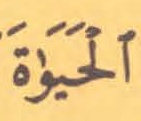 ٱلْحَيَوٰةَ